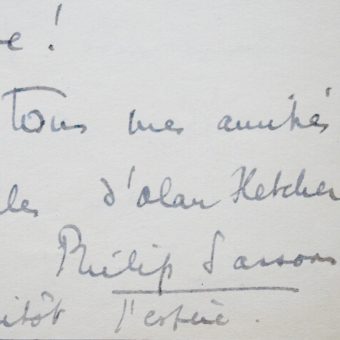 e !
Tous mes amitiés
les d'Alan Fletcher
Philip Sassoon
itôt j'espère.